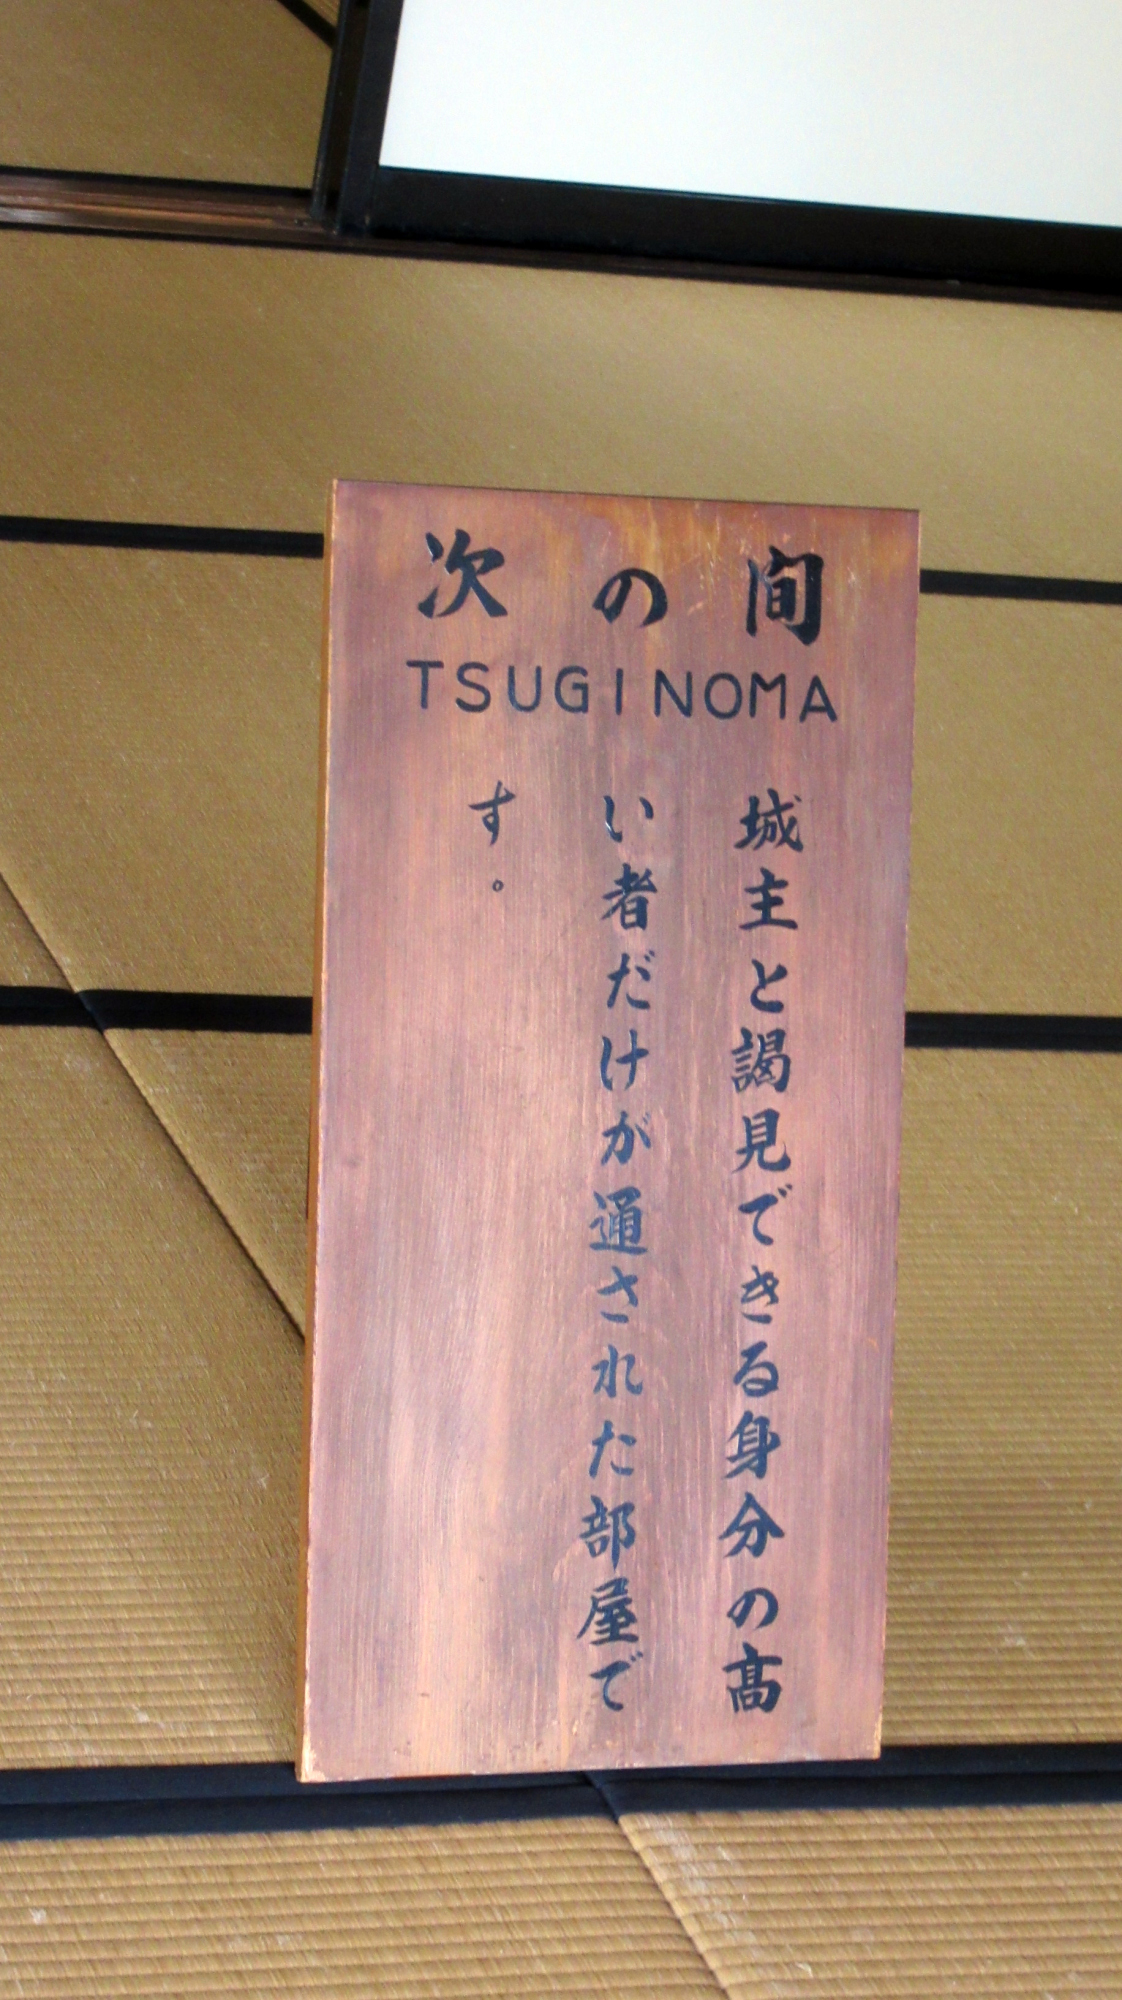 次の間
TSUGINOMA
城主と謁見できる身分の髙
い者だけが通された部屋で
す。